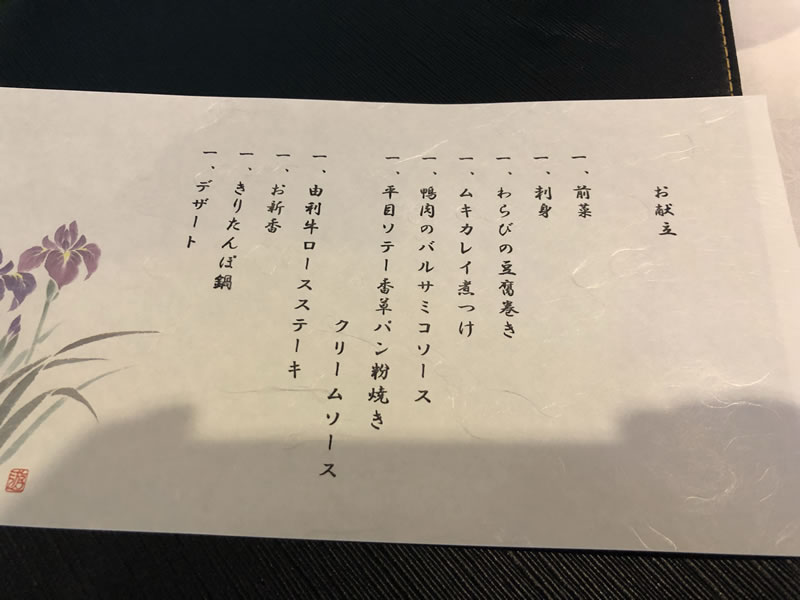 お献立
一、前菜
一、刺身
一、わらびの豆腐巻き
一、ムキカレイ煮つけ
一、鴨肉のバルサミコソース
一、平目ソテー香草パン粉焼き
クリームソース
一、由利牛ロースステーキ
一、お新香
一、きりたんぽ鍋
一、デザート